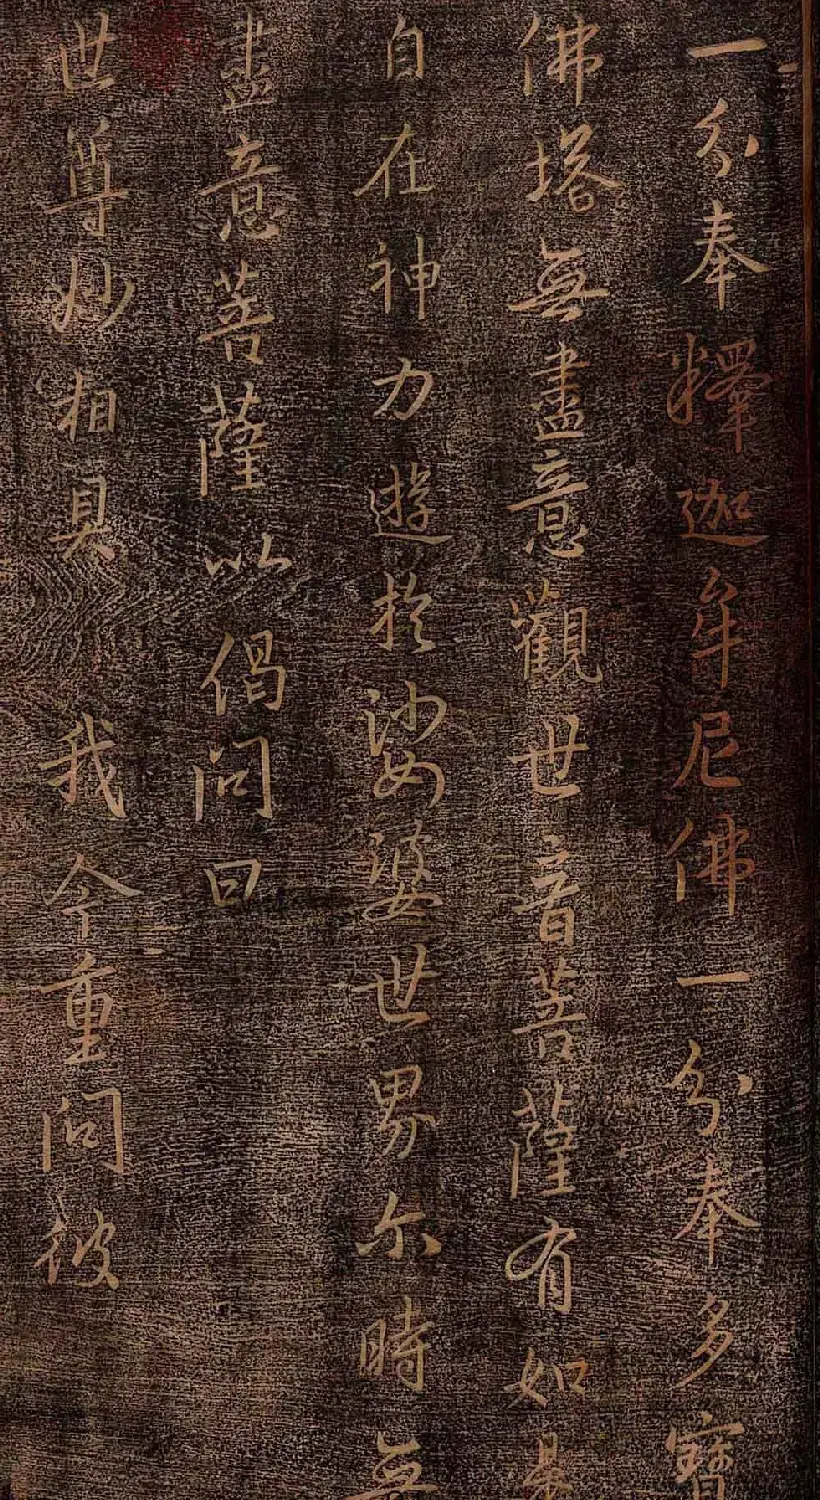 一分奉釋迦牟尼佛一分奉多寶
佛塔無盡意觀世音菩薩有如是
自在神力遊於娑婆世界尔時無
盡意菩薩以偈問曰
世尊妙相具 我今重問彼